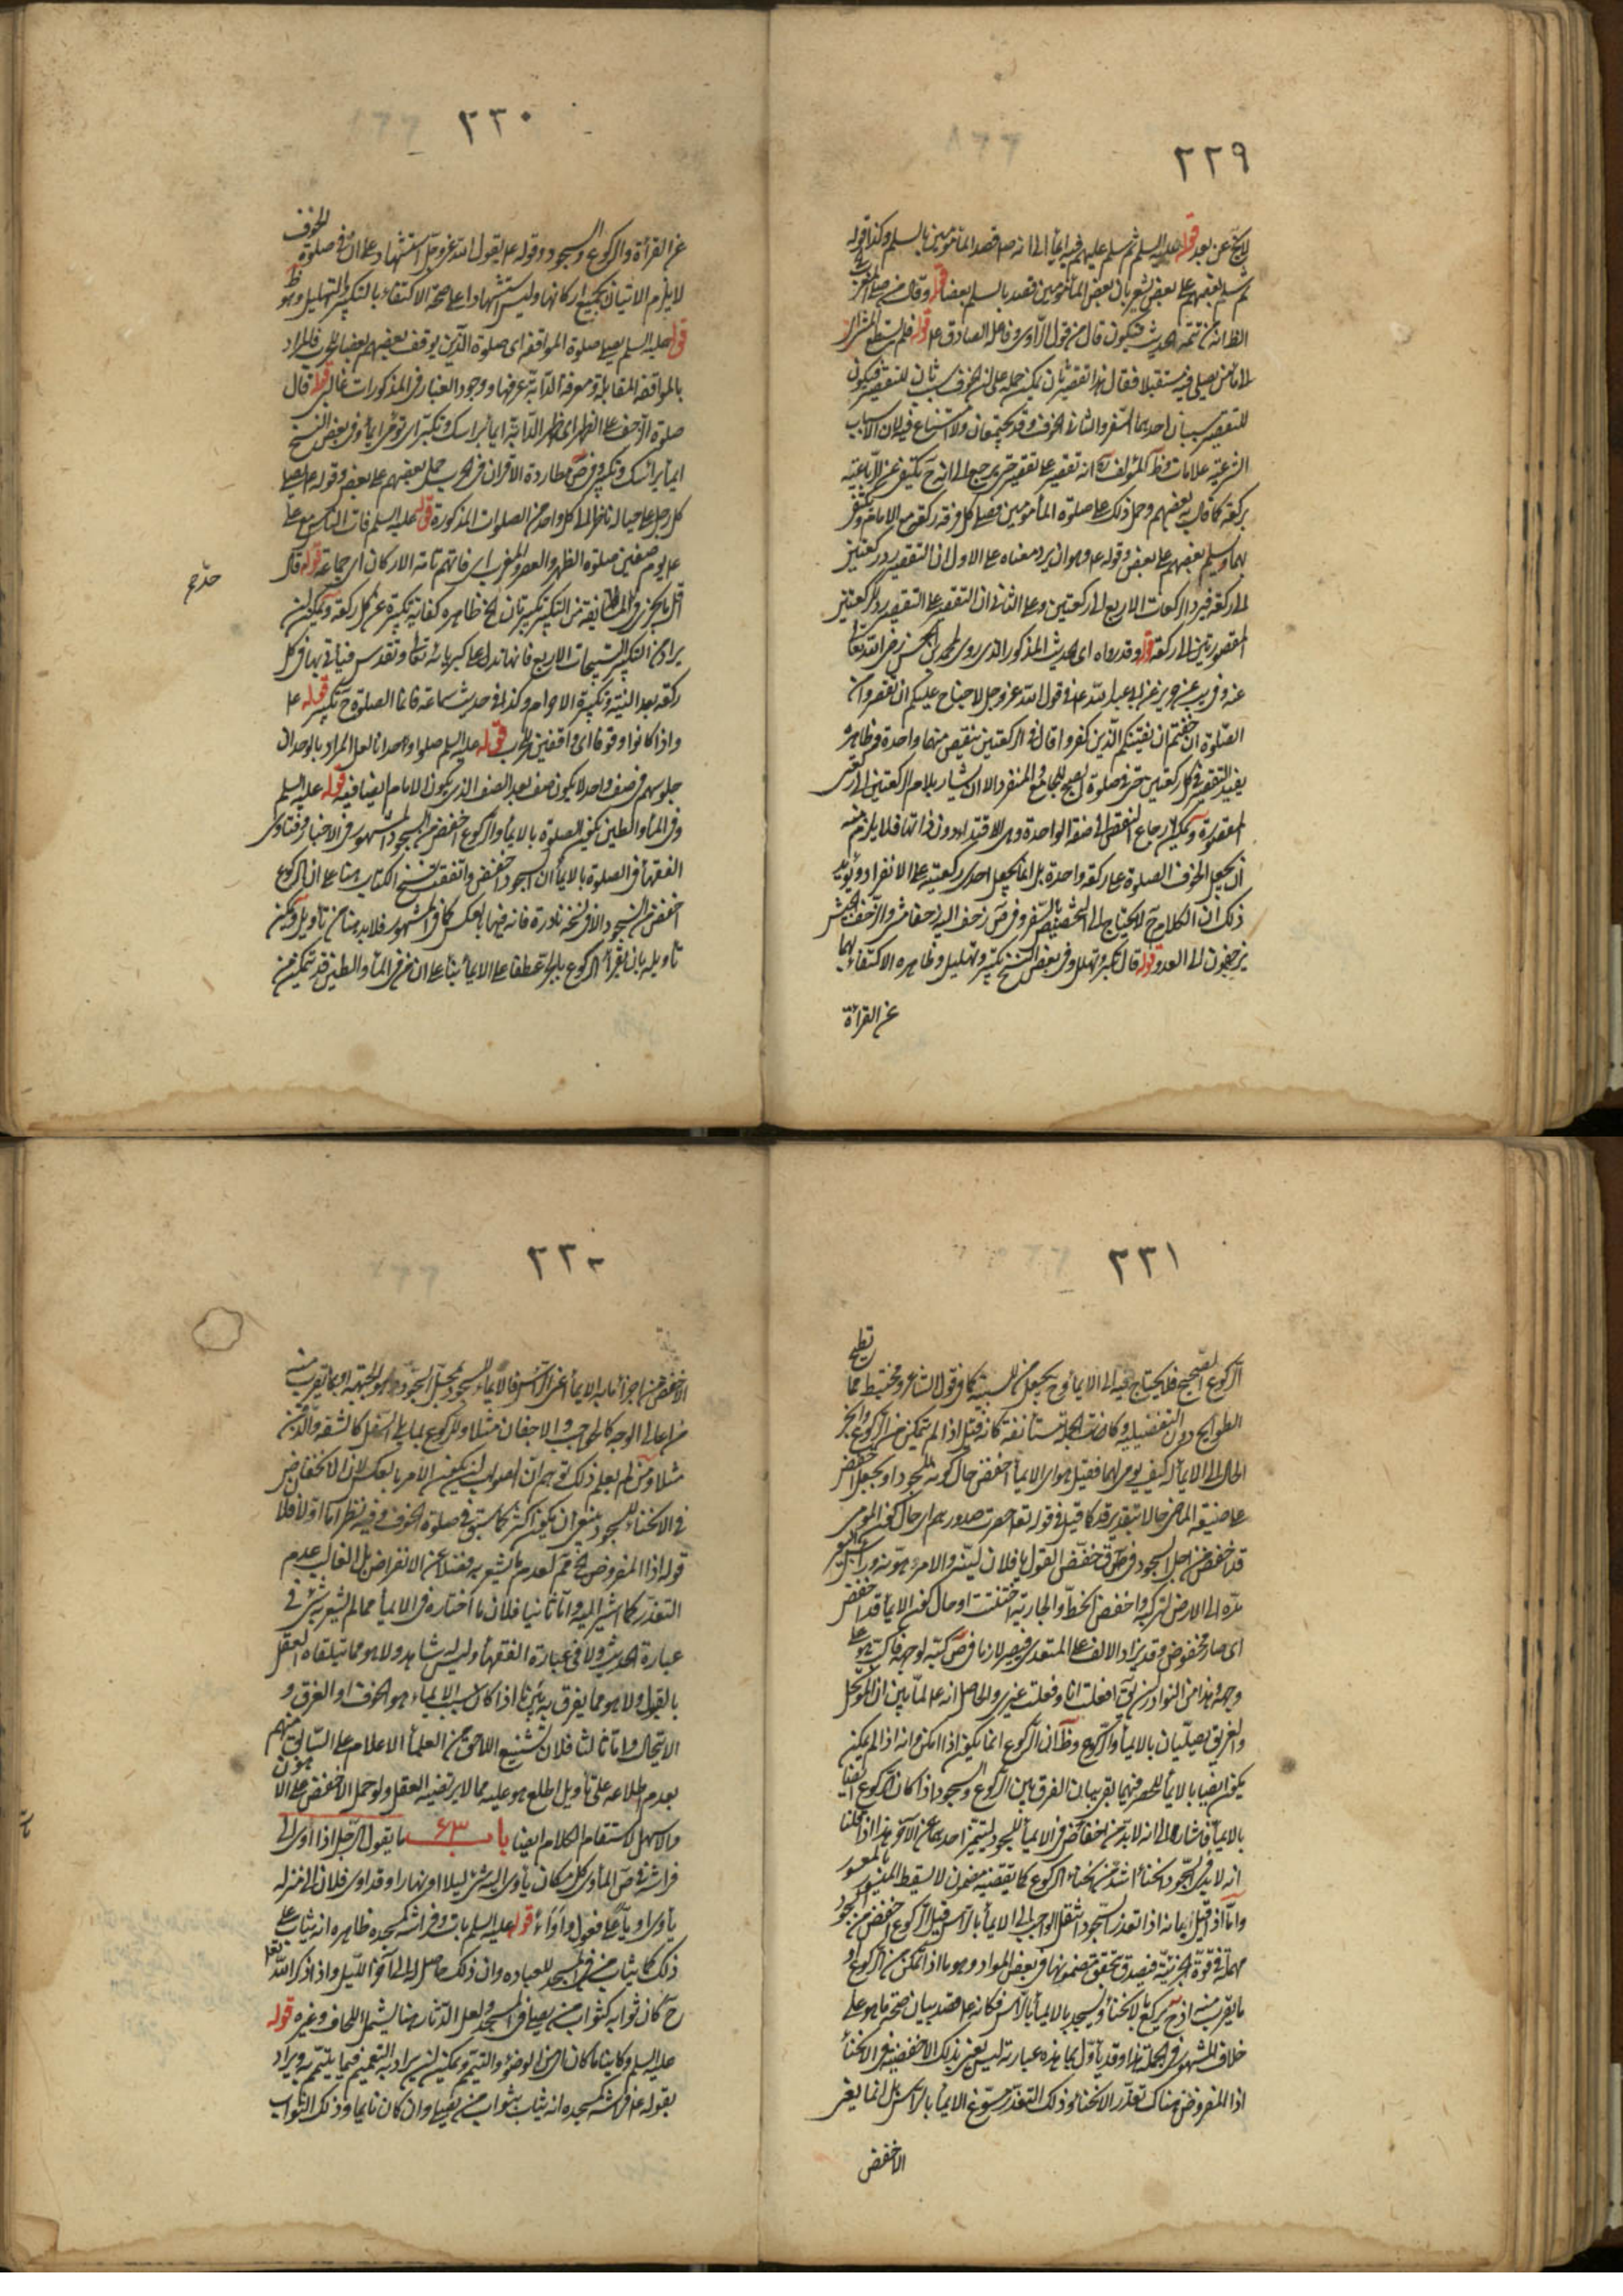 ٢٢٩
لا يخ عن بعد قوله عليه السلم ثم سلم عليهم فيه ايماء الى انه ص قصد المأمومين بالسلم وكذا قوله
ثم سلم بعضهم على بعض يشعر بان بعض المأمومين قصد بالسلم بعضا قوله وقال من صلى المغرب
الظ انه من تتمة الحديث فيكون قال من قول الراوى وفاعله الصادق ع قوله
لاناس يصلى فيه مستقبلا فقال هذا تقصير ثان يمكن حمله على ان الخوف سبب ثان للتقصير فيكون
للتقصير سببان احدهما السفر والثانى الخوف وقد يجتمعان ولا امتناع فيه لان الاسباب
الشرعية علامات وظ المؤلف ره انه تقصير على تقصير حتى يرجع الى انه ح يكتفى عن الرباعية
بركعة كما قال به بعضهم وحمل ذلك على صلوة المأمومين فيصلى كل فرقة ركعة مع الامام ويكتفى
بها ويسلم بعضهم على بعض وقوله ع وهو ان يرد معناه على الاول ان التقصير رد ركعتين
الى ركعة فيرد الركعات الاربع الى ركعتين وعلى الثانى ان التقصير على التقصير رد الركعتين
المقصورتين الى ركعة قوله وقد رواه اى الحديث المذكور الذى روى محمد بن الحسن رضى الله تعا
عنه وفى يب عن حريز عن ابى عبد الله ع فى قول الله عز وجل لا جناح عليكم ان تقصروا من
الصلوة ان خفتم ان يفتنكم الذين كفروا قال فى الركعتين ينقص منهما واحدة وظاهره
يفيد التقصير فى كل ركعتين حتى فى صلوة الصبح للجامع والمنفرد الا ان يشار بلام الركعتين الى ركعتى
المقصورة ويمكن ارجاع النقص الى صفة الواحدة وهى الاقتداء دون ذاتها فلا يلزم منه
ان يجعل الخوف الصلوة على ركعة واحدة بل انما يجعل احدى ركعتيه على الانفراد ويؤيد
ذلك ان الكلام ح لا يحتاج الى التخصيص بالسفر وفى ص زحف اليه زحفا مشى والزحف الجيش
يزحفون الى العدو قوله قال تكبر وتهلل وفى بعض النسخ تكبير وتهليل وظاهره الاكتفاء بهما
عن القراءة
٢٣٠
عن القراءة والركوع والسجود وقوله ع يقول الله عز وجل استشهاد على ان فى صلوة الخوف
لا يلزم الاتيان بجميع اركانها وليس استشهادا على صحة الاكتفاء بالتكبير والتهليل وهو ظ
قوله عليه السلم يصلى صلوة المواقفة اى صلوة الذين يوقف بعضهم بعضا للحرب فالمراد
بالمواقفة المقابلة ومعرفة الدابة عرفها ووجود الغبار فى المذكورات غالب قوله قال
صلوة الزحف على الظهر اى ظهر الدابة ايماء براسك وتكبير اى تومى ايماء وفى بعض النسخ
ايماء برأسك وتكبير وفى ص مطاردة الاقران فى الحرب حمل بعضهم على بعض وقوله ع يصلى
كل رجل على حياله ناظر الى كل واحد من الصلوات المذكورة قوله عليه السلم فات الناس مع على
ع يوم صفين صلوة الظهر والعصر والمغرب اى فاتهم تامة الاركان اى جماعة قوله قال
اقل ما يجزى فى المسايفة من التكبير تكبيرتان الخ ظاهره كفاية تكبيرة عن كل ركعة ويمكن ان
يراد من التكبير التسبيحات الاربع فانها تدل على كبريائه تعا وتقدس فيأتى بها فى كل
ركعة بعد النية وتكبيرة الاحرام وكذا فى حديث سماعة فانما الصلوة ح تكبير قوله ع
واذا كانوا وقوفا اى واقفين للحرب قوله عليه السلم صلوا وحدانا لعل المراد بالوحدان
جلوسهم فى صف واحد لا يكون صف بعد الصف الذى يكون الامام ايضا فيه قوله عليه السلم
وفى الماء والطين تكون الصلوة بالايماء والركوع اخفض من السجود المشهور فى الاخبار وفتاوى
الفقهاء فى الصلوة بالايماء ان السجود اخفض واتفقت نسخ الكتاب هنا على ان الركوع
اخفض من السجود الا فى نسخة نادرة فانه فيها بالعكس كما فى المشهور فلا بد هنا من تاويل ويمكن
تاويله بان يقرأ الركوع بالجر عطفا على الايماء بناء على ان من فى الماء والطين قد يتمكن من
٢٣١
الركوع الصحيح فلا يحتاج فيه الى الايماء وح يجعل من للسببية كما فى قول الشاعر ومختبط مما تطيح
الطوايح دون التفضيلية وكانت الجملة مستأنفة كانه قيل اذا لم يتمكن من الركوع وانجر
الحال الى الايماء له كيف يومى لهما فقيل هو اى الايماء اخفض حال كونه للسجود او يجعل اخفض
على صيغة الماضى حالا بتقدير قد كما قيل فى قوله تعا حصرت صدورهم اى حال كون المومى
قد اخفض من اجل السجود فى ص ق خفض القول يا فلان لينه والامر هونه وراس البعير
مده الى الارض لتركبه واخفض انحط والجارية ختنت او حال كون الايماء قد اخفض
اى صار مخفوض وقد يزاد الالف على المتعدى فيصير لازما فى ص كبه لوجهه فاكب هو على
وجهه وهذا من النوادر ان يق افعلت انا وفعلت غيرى والحاصل انه ع لما بين ان الموتحل
والغريق يصليان بالايماء والركوع وظ ان الركوع انما يكون اذا امكن وانه اذا لم يكن
يكون ايضا بالايماء للحصر فيهما بقى بيان الفرق بين الركوع والسجود اذا كان الركوع ايضا
بالايماء فاشار ع الى انه لا بد من اخفاض فى الايماء للسجود ليتميز احدهما عن الآخر هذا اذا قلنا
انه لا بد فى السجود انحناء اشد من انحناء الركوع كما يقتضيه مضمون لا يسقط الميسور بالمعسور
واما اذا قيل بانه اذا تعذر السجود انتقل الواجب الى الايماء بالراس فقيل الركوع اخفض من السجود
مهملة فى قوة الجزئية فيصدق بتحقق مضمونها فى بعض المواد وهو ما اذا تمكن من الركوع او
ما يقرب منه اذ ح يركع بالانحناء ويسجد بالايماء بالراس فكانه ع قصد بيان صحة ما هو على
خلاف المشهور فى الجملة هذا وقد ياول بما هذه عبارته ليس يعنى بذلك الاخفضية فى الانحناء
اذ المفروض هناك تعذر الانحناء وذلك التعذر مسوغ الايماء بالراس بل انما يعنى
الاخفض
٢٣٢
الاخفض من اجزاء ما به الايماء اعنى الراس فالايماء للسجود بمحل السجود وهو الجبهة او بما يقرب منه
من اعالى الوجه كالحواجب والاجفان مثلا وللركوع بما يلى اسفل كالشفة والذقن
مثلا ومن لم يعلم ذلك توهم ان الصواب ان يكون الامر بالعكس لان الانخفاض
فى الانحناء للسجود ينبغى ان يكون اكثر كما سبق فى صلوة الخوف وفيه نظر اما اولا فلان
قوله اذ المفروض الخ مم لعدم ما يشعر به فضلا عن الافتراض بل الغالب عدم
التعذر كما اشير اليه واما ثانيا فلان ما اختاره فى الايماء مما لم يشعر به شئ فى
عبارة الحديث ولا فى عبارة الفقهاء وليس له شاهد ولا هو مما يتلقاه العقل
بالقبول ولا هو مما يفرق به بين ما اذا كان سبب الايماء هو الخوف او الغرق و
الاتحال واما ثالثا فلان تشنيع اللاحق من العلماء الاعلام على السابق منهم
بعدم اطلاعه على تاويل اطلع هو عليه مما لا يرتضيه العقل ولو حمل الاخفض على الاهون
والاسهل لاستقام الكلام ايضا باب ٦٣ ما يقول الرجل اذا اوى الى
فراشه فى ص المأوى كل مكان يأوى اليه شئ ليلا او نهارا وقد اوى فلان الى منزله
يأوى اويا على فعول واواء قوله عليه السلم بات وفراشه كمسجده ظاهره انه يثاب على
ذلك كما يثاب من فى المسجد للعباده وان ذلك حاصل له الى آخر الليل واذا ذكر الله تعا
ح كان ثوابه كثواب من يصلى فى المسجد ولعل الدثار هنا يشمل اللحاف وغيره قوله
عليه السلم وكاينا ما كان اى من الوضوء والتيمم ويمكن ان يراد به التعميم فيما يتيمم به ويراد
بقوله ع فراشه كمسجده انه يثاب بثواب من يصلى وان كان نايما وذلك الثواب